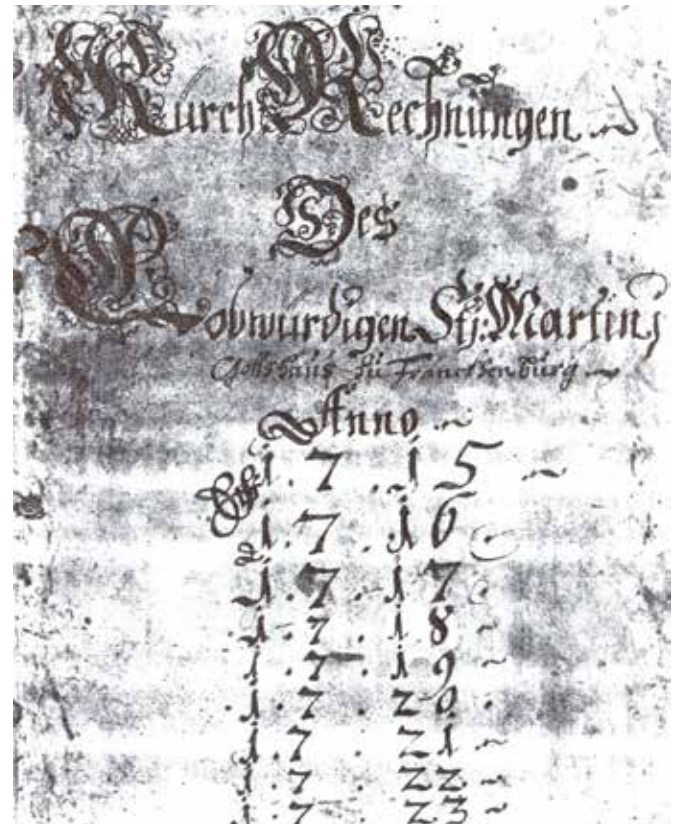 Kürch Rechnüngen
Des
Lobwürdigen Sti: Martinj
Gottshaus Zu Franckhenburg
Anno
1.7.15
1.7.16
1.7.17
1.7.18
1.7.19
1.7.20.
1.7.21
1.7.22
1.7.23